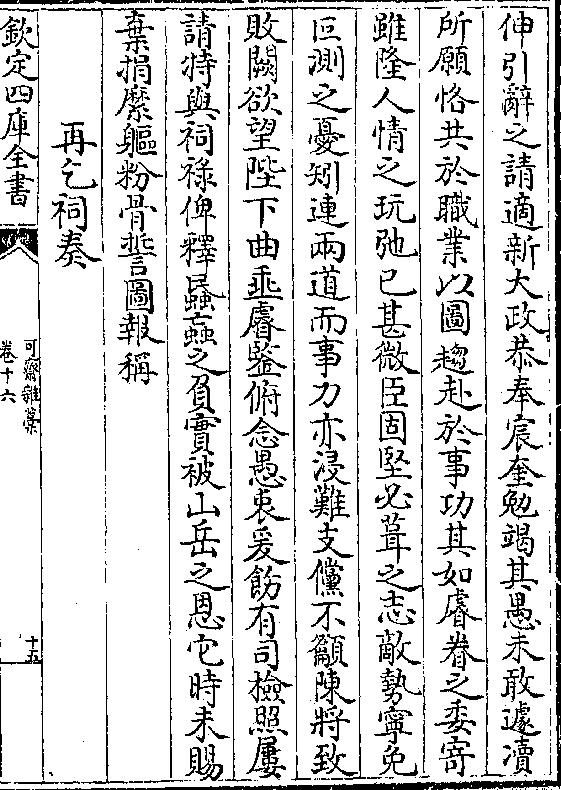 伸引辭之請適新大政恭奉宸奎勉竭其愚未敢遽瀆
所願恪共於職業以圖趨赴於事功其如睿眷之委寄
雖隆人情之玩弛已甚微臣固堅必葺之志敵勢寧免
叵測之憂矧連兩道而事力亦浸難支儻不籲陳將致
敗闕欲望陛下曲垂睿鍳俯念愚衷爰飭有司檢照屢
請特與祠祿俾釋蟲蝱之負實被山岳之恩它時未賜
棄捐縻軀粉骨誓圖報稱
再乞祠奏
欽定四庫全書
可齋雜藁
卷十六
十五